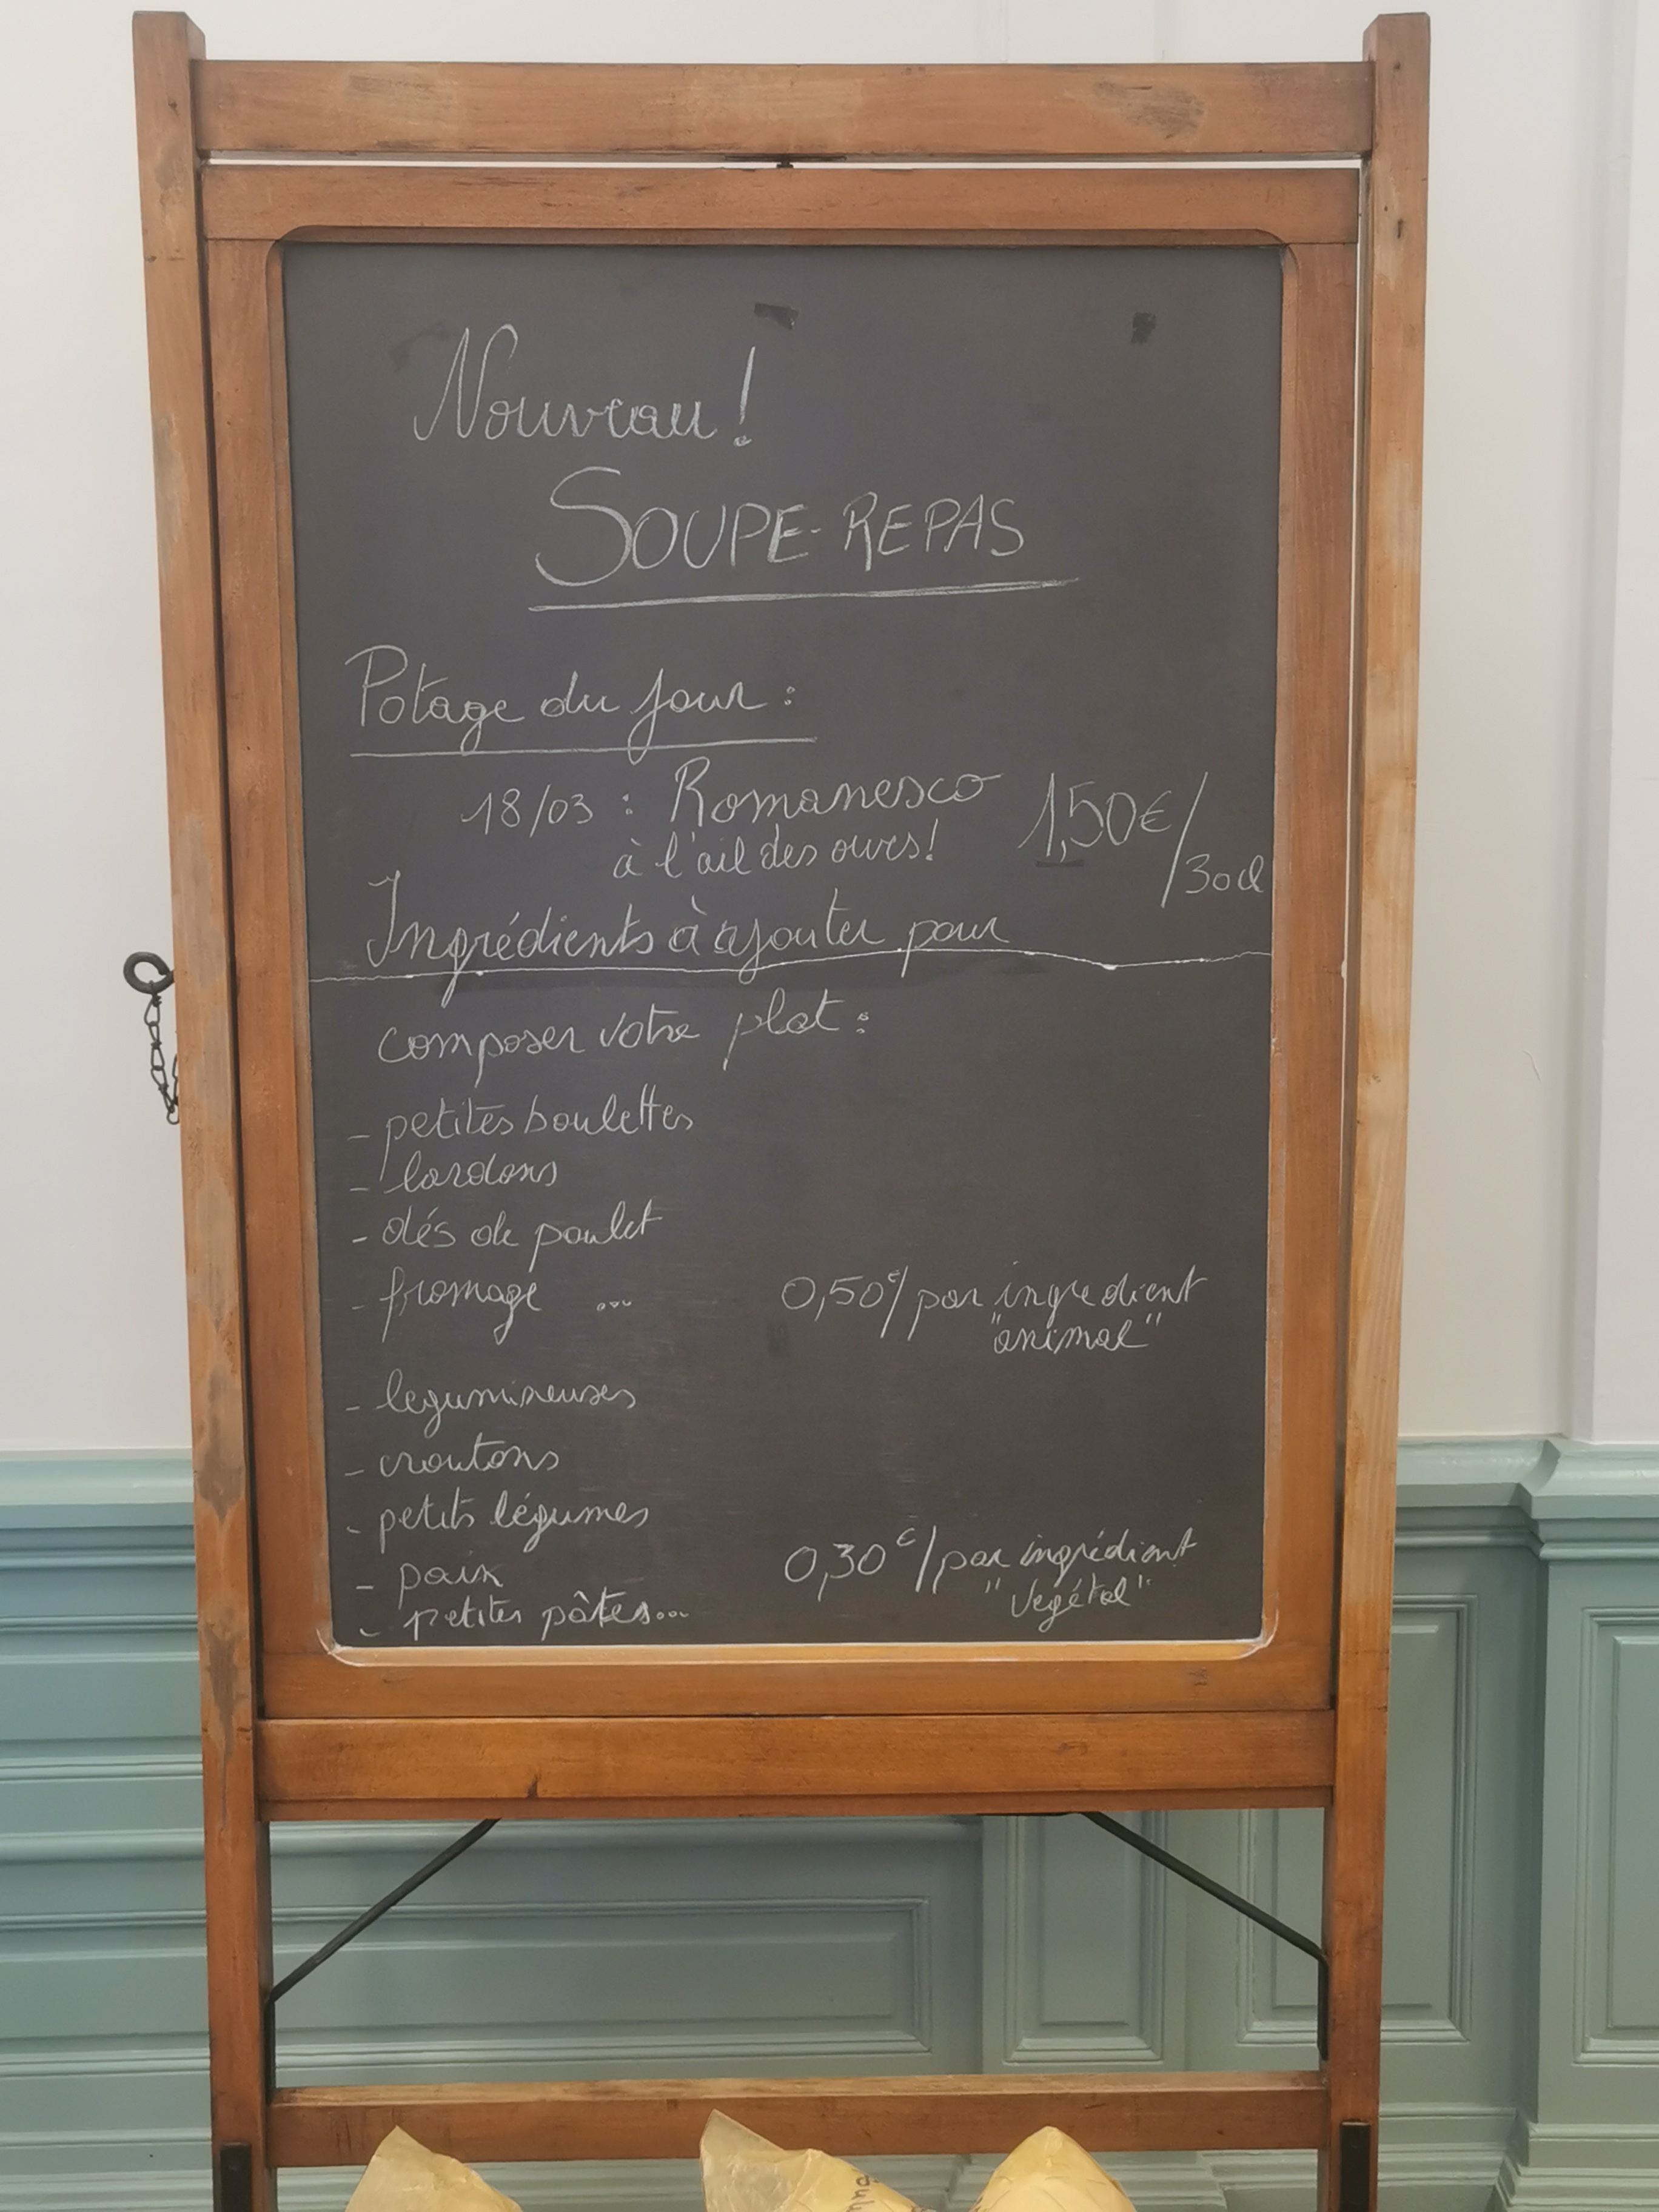 Nouveau!
SOUPE-REPAS
Potage du jour :
18/03 : Romanesco 1,50€/30cl
à l'ail des ours!
Ingrédients à ajouter pour
composer votre plat :
- petites boulettes
- lardons
- dés de poulet
- fromage ... 0,50€/par ingredient
"animal"
- legumineuses
- croutons
- petits légumes
- pain 0,30€/par ingrédient
- petites pâtes... "végétal"